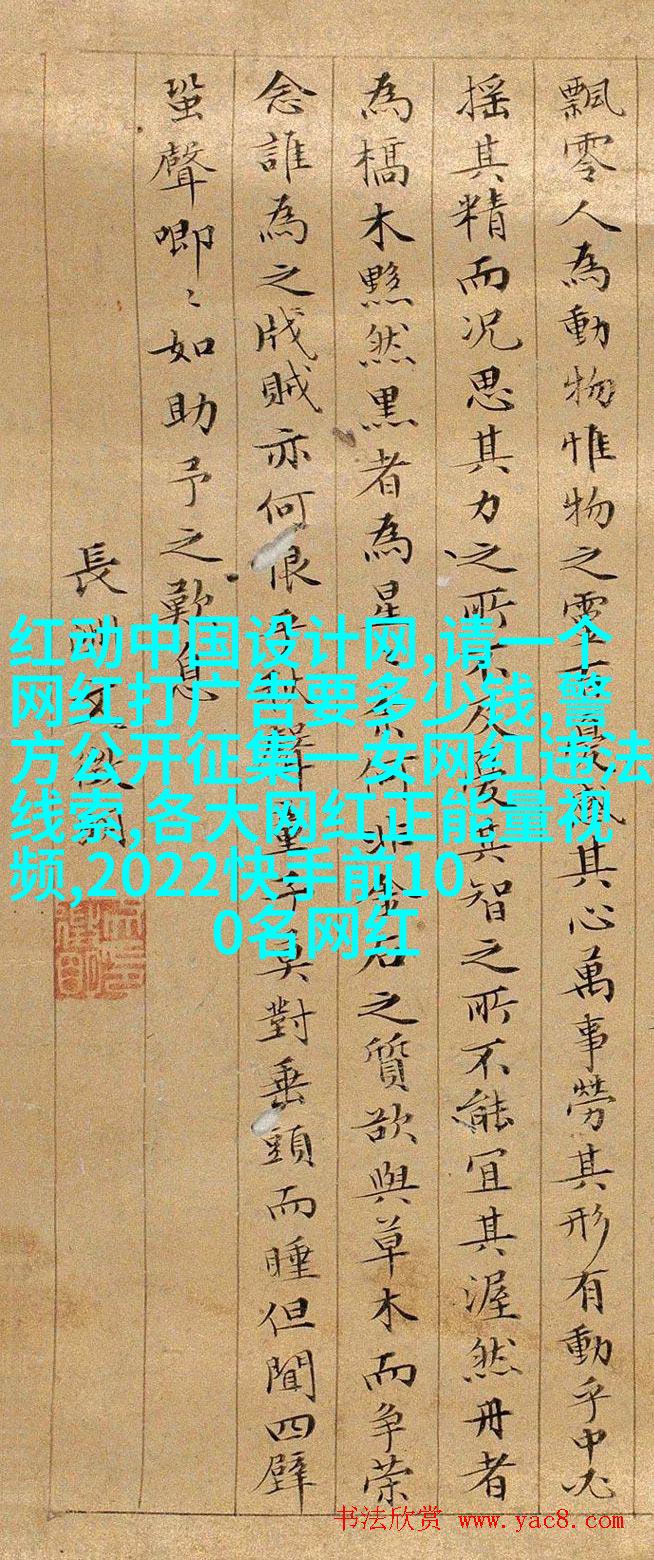 飄零人為動物惟物之靈百憂感其心萬事勞其形有動乎中必
搖其精而况思其力之所不及憂其智之所不能宜其渥然丹者
為槁木黟然黑者為星〻奈何非金石之質欲與草木而争荣
念誰為之戕賊亦何恨乎秋聲童子莫對垂頭而睡但聞四壁
蛩聲唧〻如助予之歎息
長洲文徵明
红动中国设计网,请一个
网红打广告要多少钱,警
方公开征集一女网红违法
线索,各大网红正能量视
频,2022快手前10
0名网红
书法欣赏 www.yac8.com